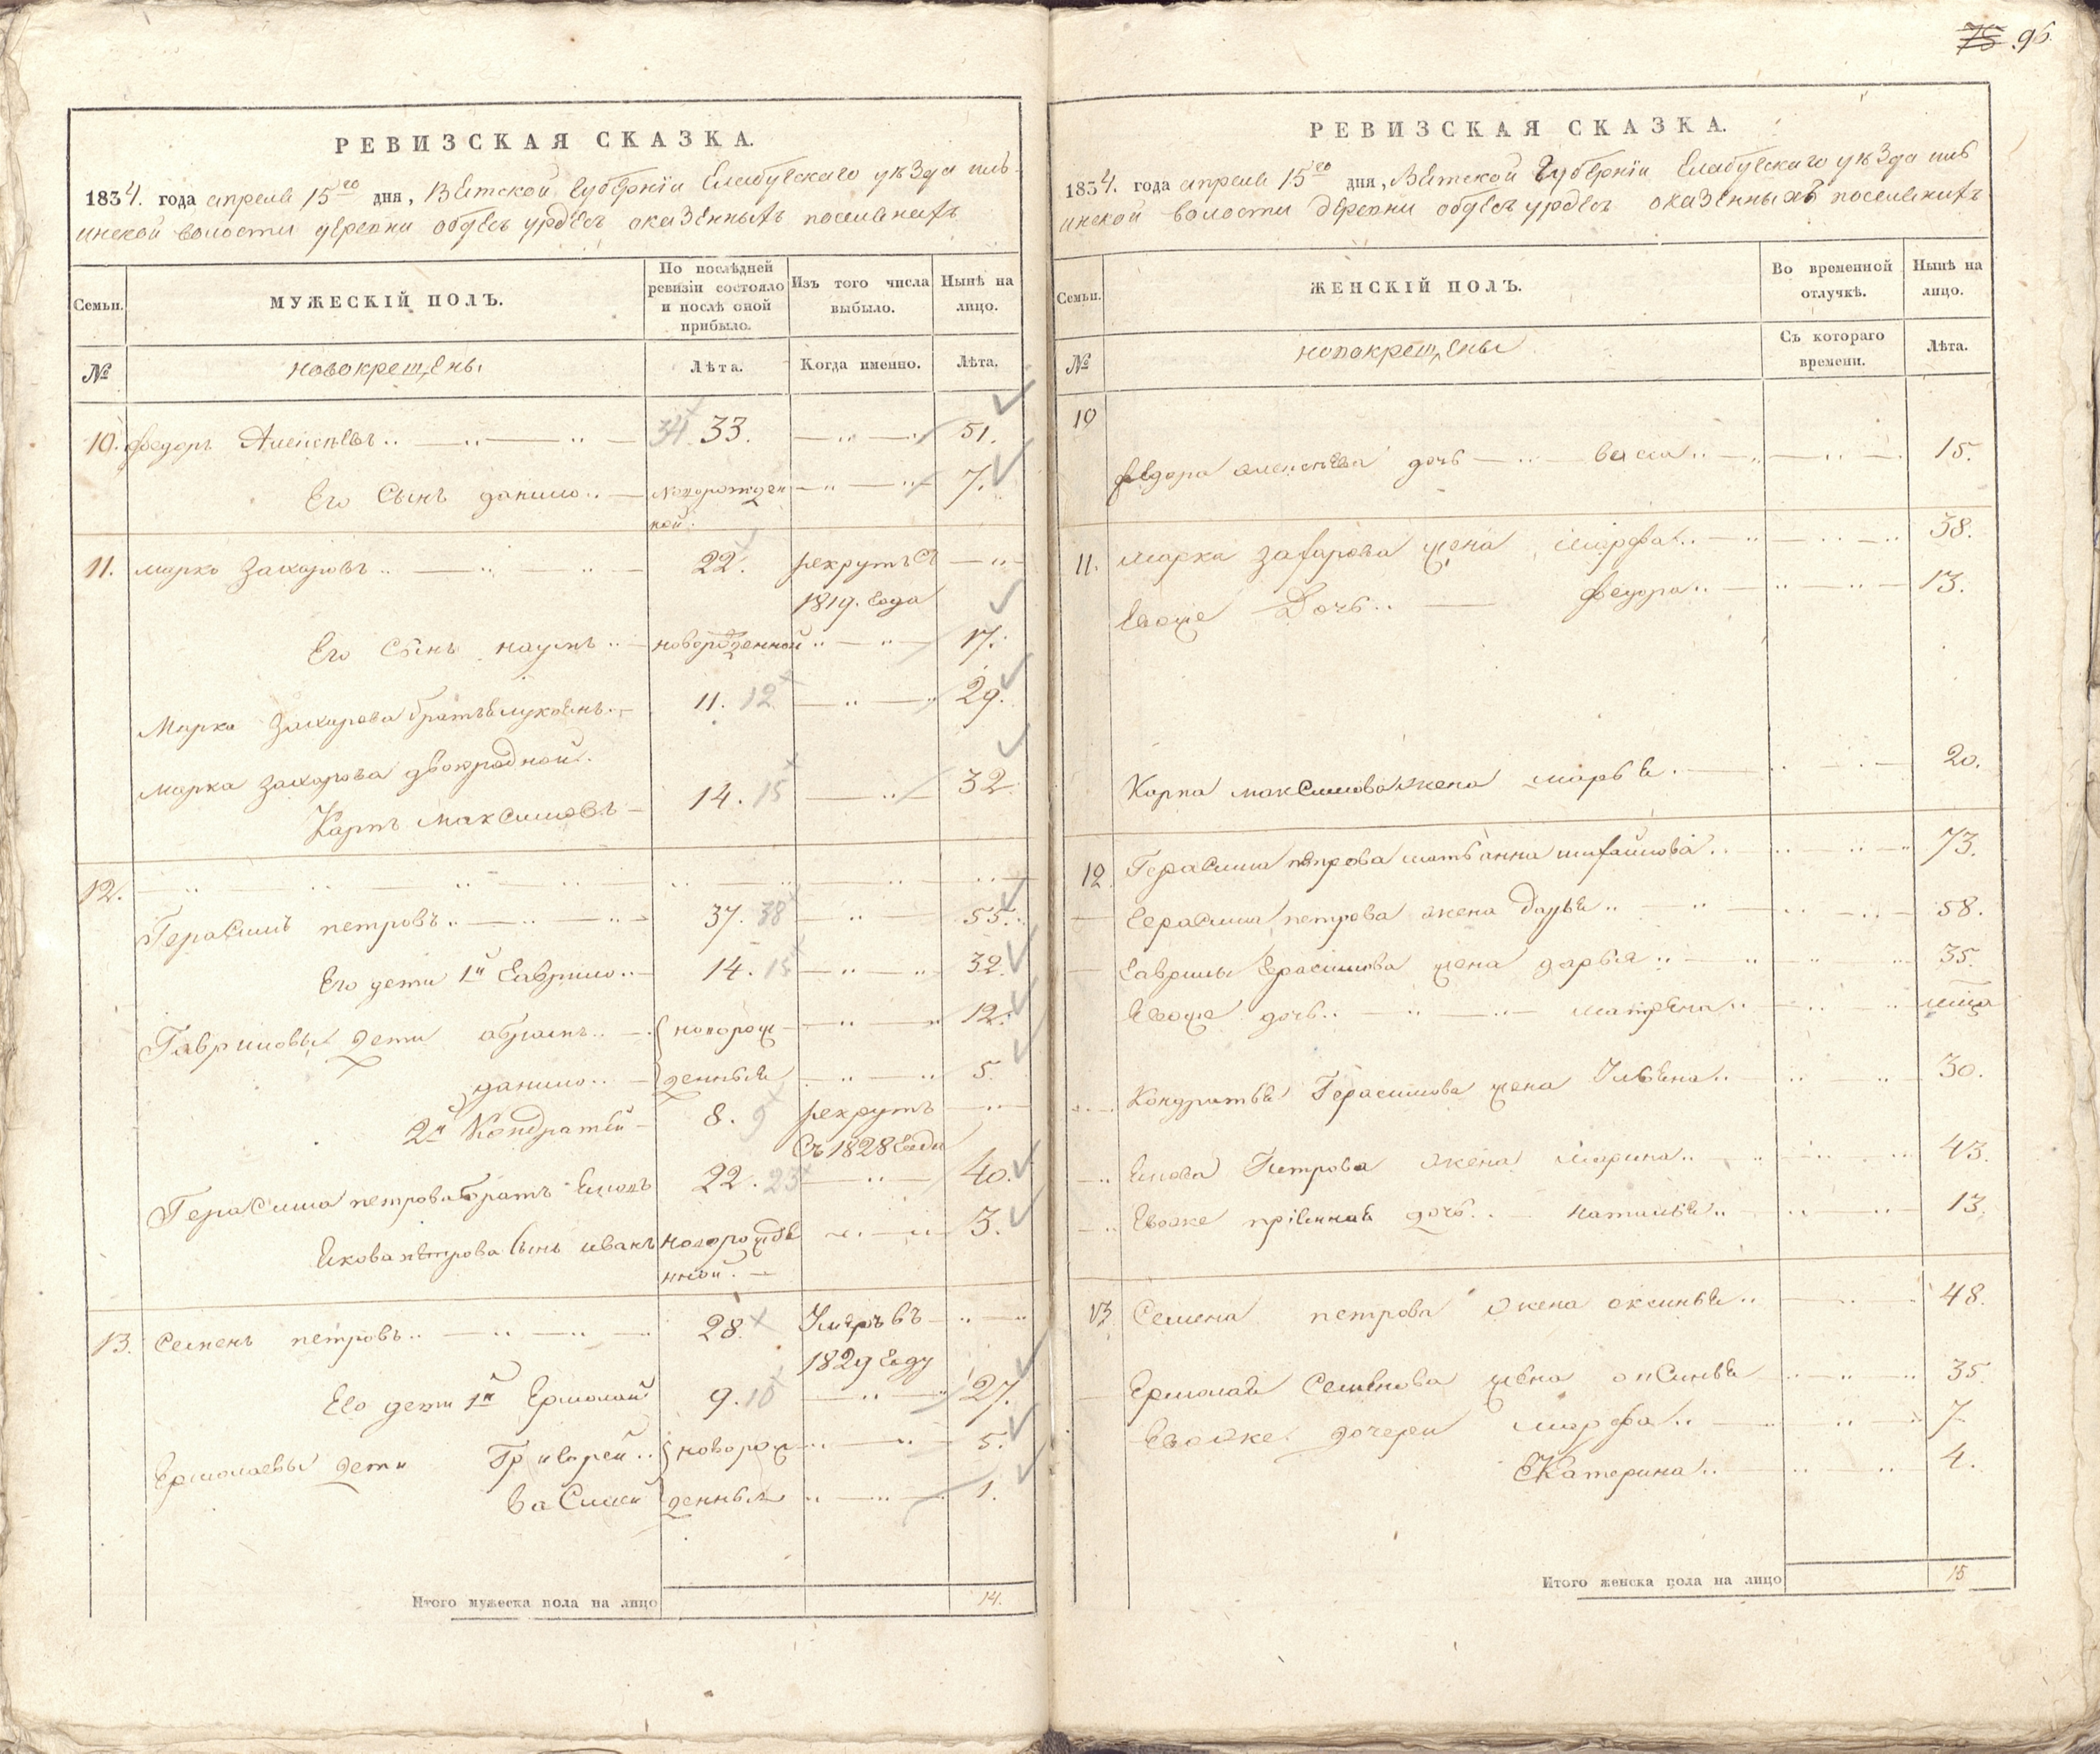 75 96.
РЕВИЗСКАЯ СКАЗКА.
1834. года апреля 15го дня, Вятской губернiи Елабугскаго уѣзда пль-
инской волости деревни обдесъ урдесъ оказенныхъ поселянахъ
Семьи. МУЖЕСКIЙ ПОЛЪ. По послѣдней ревизiи состояло и послѣ оной прибыло. Изъ того числа выбыло. Нынѣ на лицо.
№ новокрещены Лѣта. Когда именно. Лѣта.
10. Федоръ Алексѣевъ 34. 33. 51.
Его Сынъ данило новорожден 7.
ной.
11. Марко Захаровъ 22. рекрутъ съ
1819. года
Его Сынъ наумъ новорожденной 17.
Марка Захарова братъ 11. 12 29.
Марка Захарова двоюродной
Карпъ Максимовъ 14. 15 32
12.
Герасимъ петровъ 37. 38 55.
Его дети 1й Гаврило 14. 15 32.
Гавриловы дети абрамъ новорож 12.
данило денные 5.
2й Кондратей 8. 9 рекрутъ
Съ 1828 года
Герасима петрова братъ 22. 23 40.
петрова Сынъ иванъ новорожде 3.
нной.
13. Семенъ петровъ 28. Умеръ въ
1829 году
Его дети 1й Ермолай 9. 10 27.
Ермолаевы дети Григорей новорож 5.
Василей денные 1.
Итого мужеска пола на лицо 14.
РЕВИЗСКАЯ СКАЗКА.
1834. года апреля 15го дня, Вятской Губернiи Елабугскаго уѣзда пль
инской волости деревни обдесъ урдесъ оказенныхъ поселянахъ
Семьи. ЖЕНСКIЙ ПОЛЪ. Во временной отлучкѣ. Нынѣ на лицо.
№ новокрещены Съ котораго времени. Лѣта.
10
Федора алексѣева дочь васса 15.
11. Марка захарова жена Марфа 38.
Евоже Дочь федора 13.
Карпа максимова жена марья 20.
12. Герасима петрова мать анна михайлова 73.
Герасима петрова жена дарья 58.
Гаврилы Герасимова жена дарья 35.
Евоже дочь матрена
Кондратья Герасимова жена Ульяна 30.
Петрова жена Марина 43.
Евоже дочь наталья 13.
13. Семена петрова жена оксинья 48.
Ермолая Семенова жена оксинья 35.
Евоже дочери марфа 7
Екатерина 4.
Итого женска пола на лицо 15